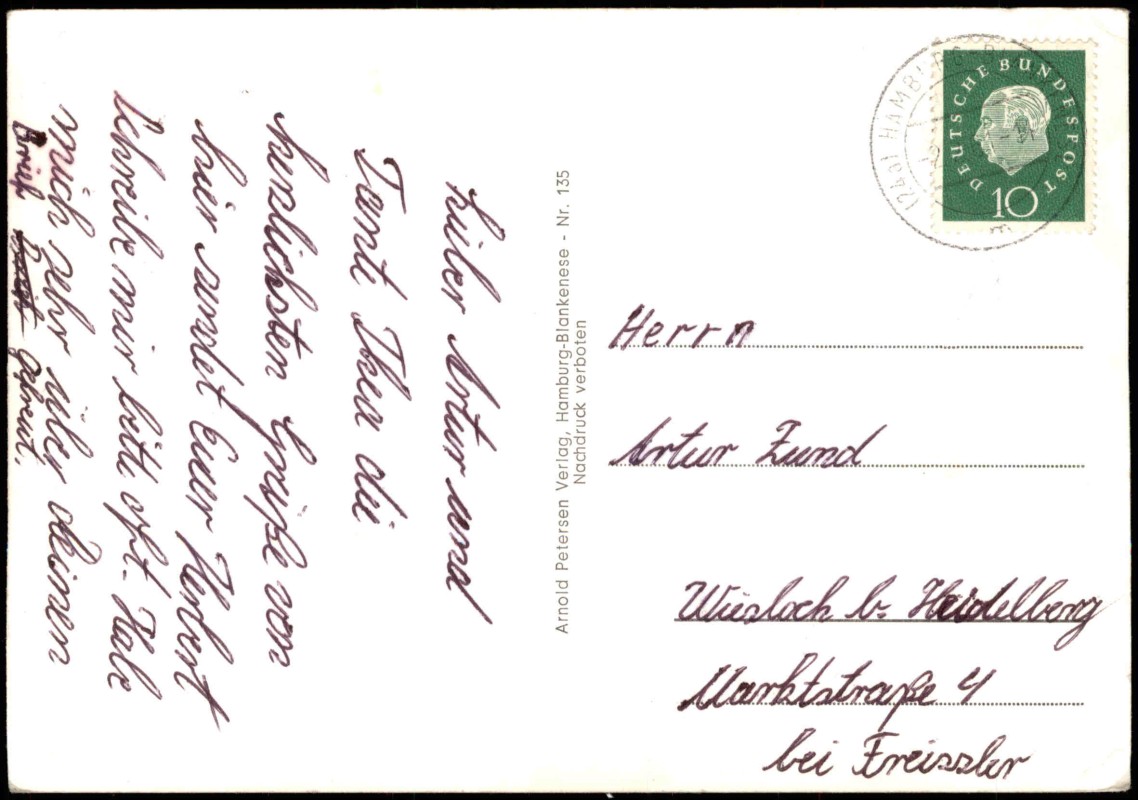 Lieber Artur und
Tante Thea die
herzlichsten Grüße von
hier sendet Euer Herbert
Schreibe mir bitte oft. Habe
mich sehr über deinen
Brief gefreut.
Arnold Petersen Verlag, Hamburg-Blankenese - Nr. 135
Nachdruck verboten
(24a) HAMBURG-
DEUTSCHE BUNDESPOST
10
Herrn
Artur Zund
Wiesloch b. Heidelberg
Marktstraße 4
bei Freissler